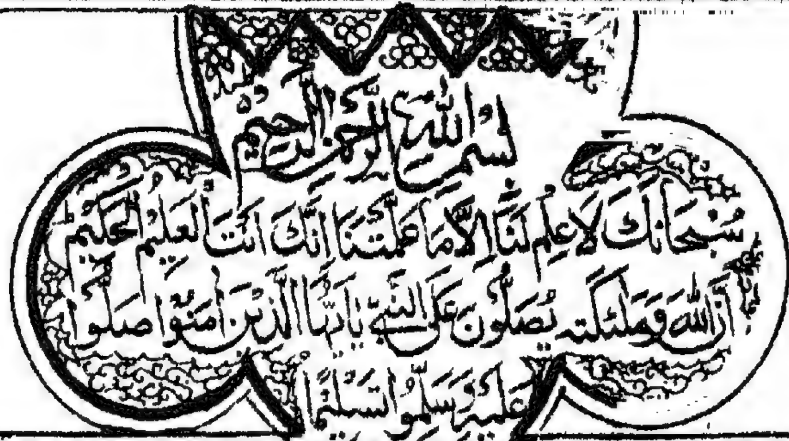 بسم الله الرحمن الرحيم
سُبْحَانَكَ لَاعِلْمَ لَنَّا اِلَّا مَا عَلَّمْتَنَا اِنَّكَ اَنْتَ الْعَلِيْمُ الْحَكِيْمُ
اِنَّ اللهَ وَمَلٰئِكَتَہٗ يُصَلُّوْنَ عَلَی النَّبِیِّ يٰاَيُّهَا الَّذِيْنَ اٰمَنُوْا صَلُّوْا
عَلَيْهِ وَسَلِّمُوْا تَسْلِيْمًا